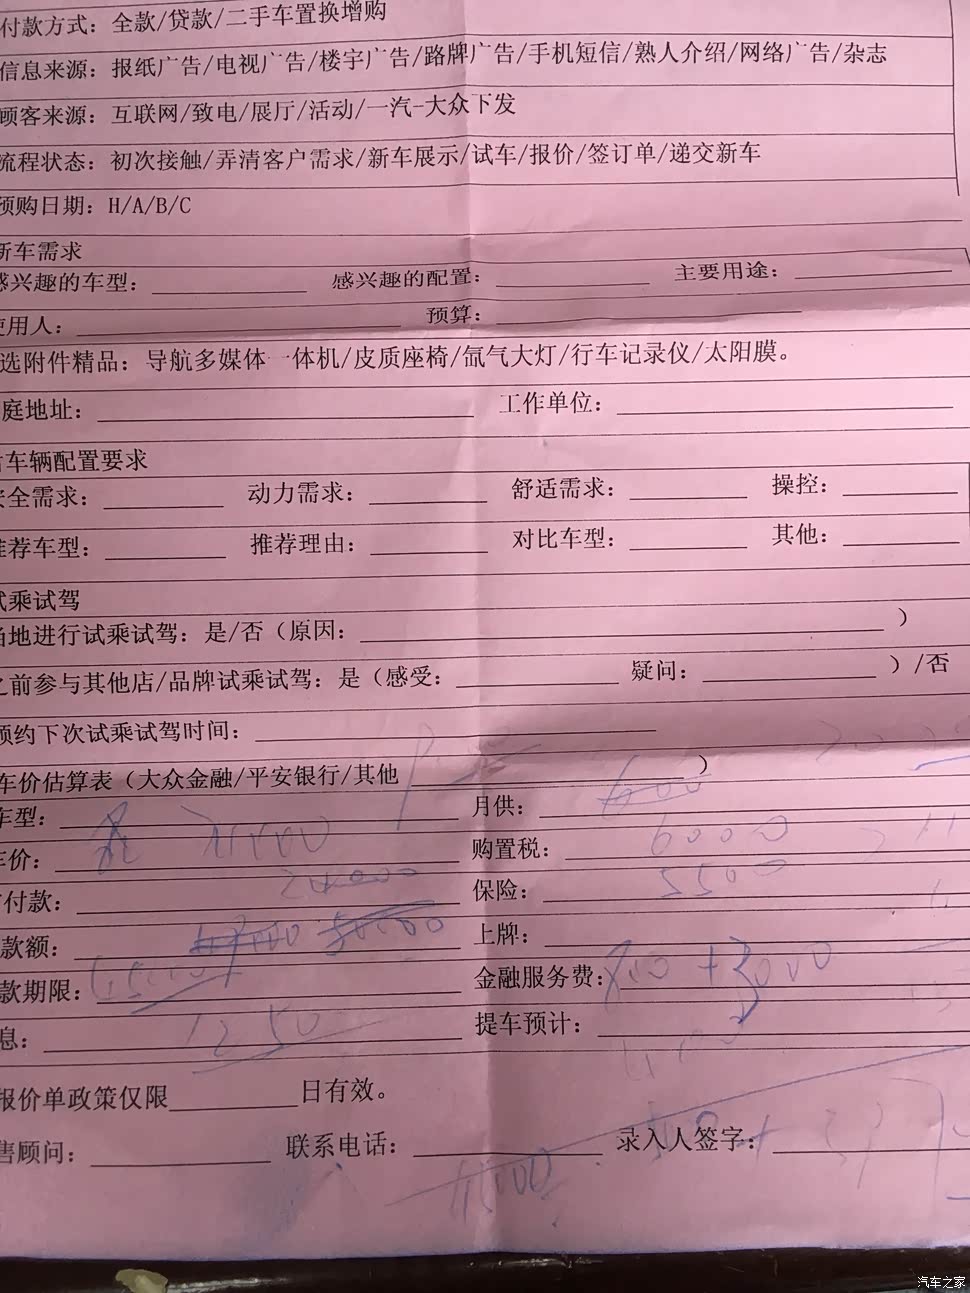 付款方式：全款/贷款/二手车置换增购
信息来源：报纸广告/电视广告/楼宇广告/路牌广告/手机短信/熟人介绍/网络广告/杂志
顾客来源：互联网/致电/展厅/活动/一汽-大众下发
流程状态：初次接触/弄清客户需求/新车展示/试车/报价/签订单/递交新车
预购日期：H/A/B/C
新车需求
感兴趣的车型： 感兴趣的配置： 主要用途：
使用人： 预算：
选附件精品：导航多媒体一体机/皮质座椅/氙气大灯/行车记录仪/太阳膜。
庭地址： 工作单位：
车辆配置要求
安全需求： 动力需求： 舒适需求： 操控：
推荐车型： 推荐理由： 对比车型： 其他：
试乘试驾
当地进行试乘试驾：是/否（原因： ）
之前参与其他店/品牌试乘试驾：是（感受： 疑问： ）/否
预约下次试乘试驾时间：
车价估算表（大众金融/平安银行/其他 ）
车型： 月供： 600
车价： 购置税： 6000
付款： 24000 保险： 5500
款额： 50000 上牌：
款期限： 金融服务费： 800 + 3000
息： 1250 提车预计：
报价单政策仅限 日有效。
售顾问： 联系电话： 录入人签字：
汽车之家